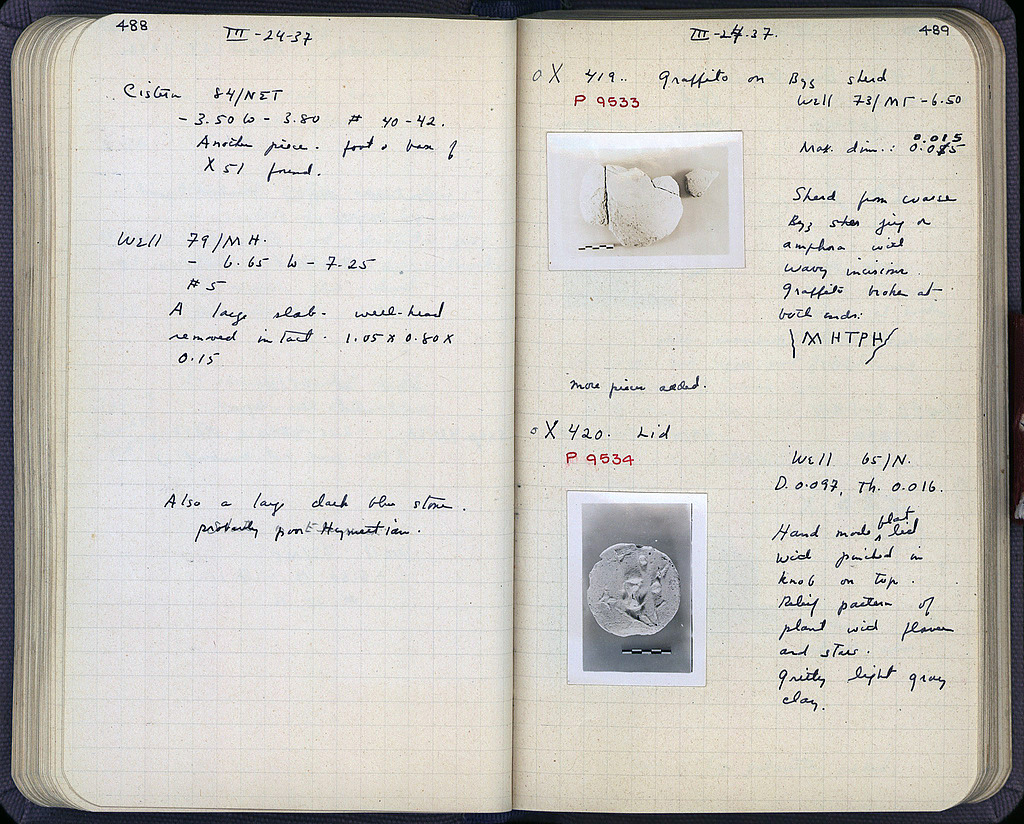 488
III-24-37
Cistern 84/NET
-3.50 to -3.80 # 40-42.
Another piece. foot & base of
X 51 found.
Well 79/MH.
- 6.65 to - 7.25
# 5
A large slab - well-head
removed intact. 1.05 x 0.80 x
0.15
Also a large dark blue stone.
probably poor Hymettian.
III-24.37.
489
O X 419. Graffito on Byz sherd
P 9533
Well 73/MT -6.50
0.015
Max. dim.: 0.015
Sherd from coarse
Byz jug or
amphora with
wavy incisions.
Graffito broken at
both ends:
MHTPH
More pieces added.
o X 420. Lid
P 9534
Well 65/N.
D. 0.097, Th. 0.016.
Hand made flat lid
with pinched in
knob on top.
Relief pattern of
plant with flower
and stars.
Gritty light gray
clay.